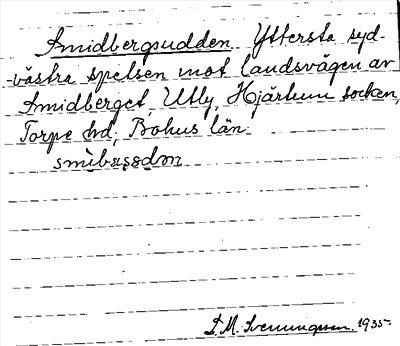 Smidbergsudden. Yttersta syd-
-västra spetsen mot landsvägen av
Smidberget, Utby, Hjärtum socken,
Torpe hd, Bohus län.
smìbæsødn
S. M. Svenungsson. 1935.